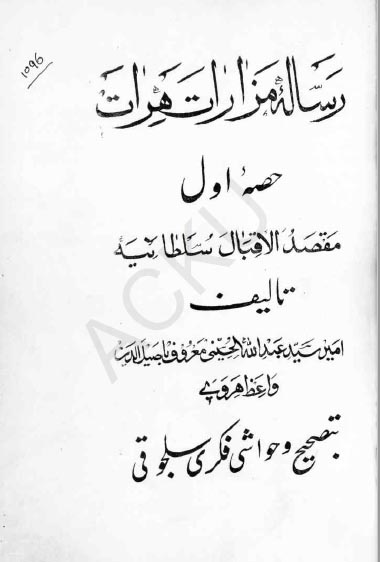 1096
رسالهٔ مزارات هرات
حصهٔ اول
مقصد الاقبال سلطانیه
تالیف
امیر سید عبدالله الحسینی معروف باصیل الدین
واعظ هروی
بتصحیح و حواشی فکری سلجوقی
ACKU